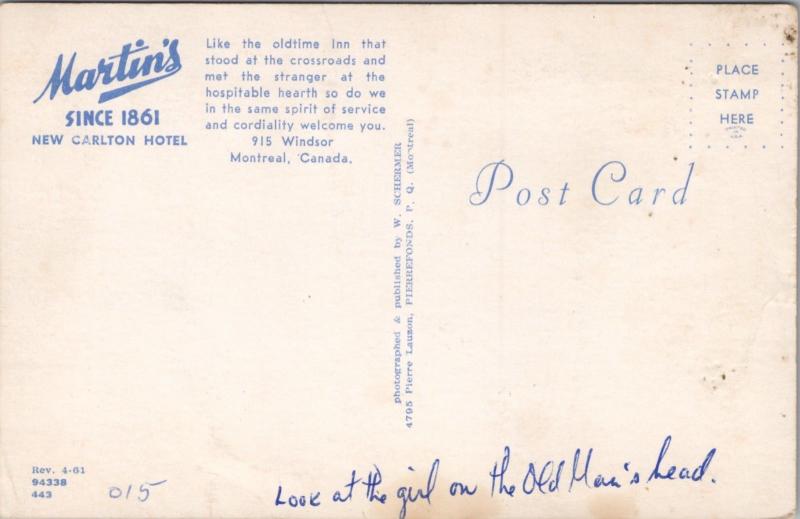 Martin's
SINCE 1861
NEW CARLTON HOTEL
Like the oldtime Inn that
stood at the crossroads and
met the stranger at the
hospitable hearth so do we
in the same spirit of service
and cordiality welcome you.
915 Windsor
Montreal, Canada.
photographed & published by W. SCHERMER
4795 Pierre Lauzon, PIERREFONDS, P. Q. (Montreal)
PLACE
STAMP
HERE
Post Card
Rev. 4-61
94338
443
015
Look at the girl on the Old Man's head.